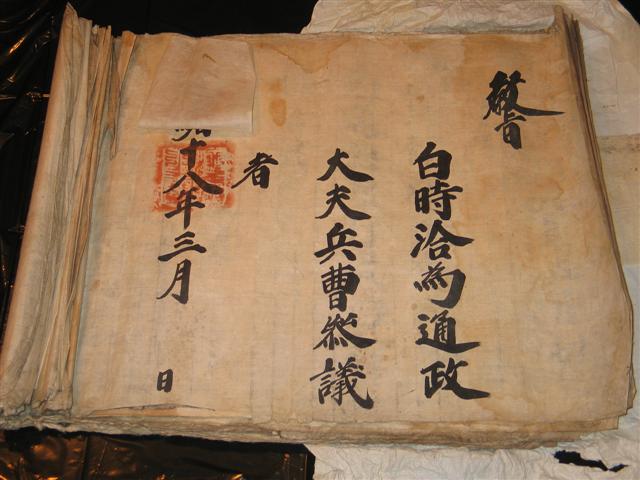 敎旨
白時洽為通政
大夫兵曹叅議
者
十八年三月 日